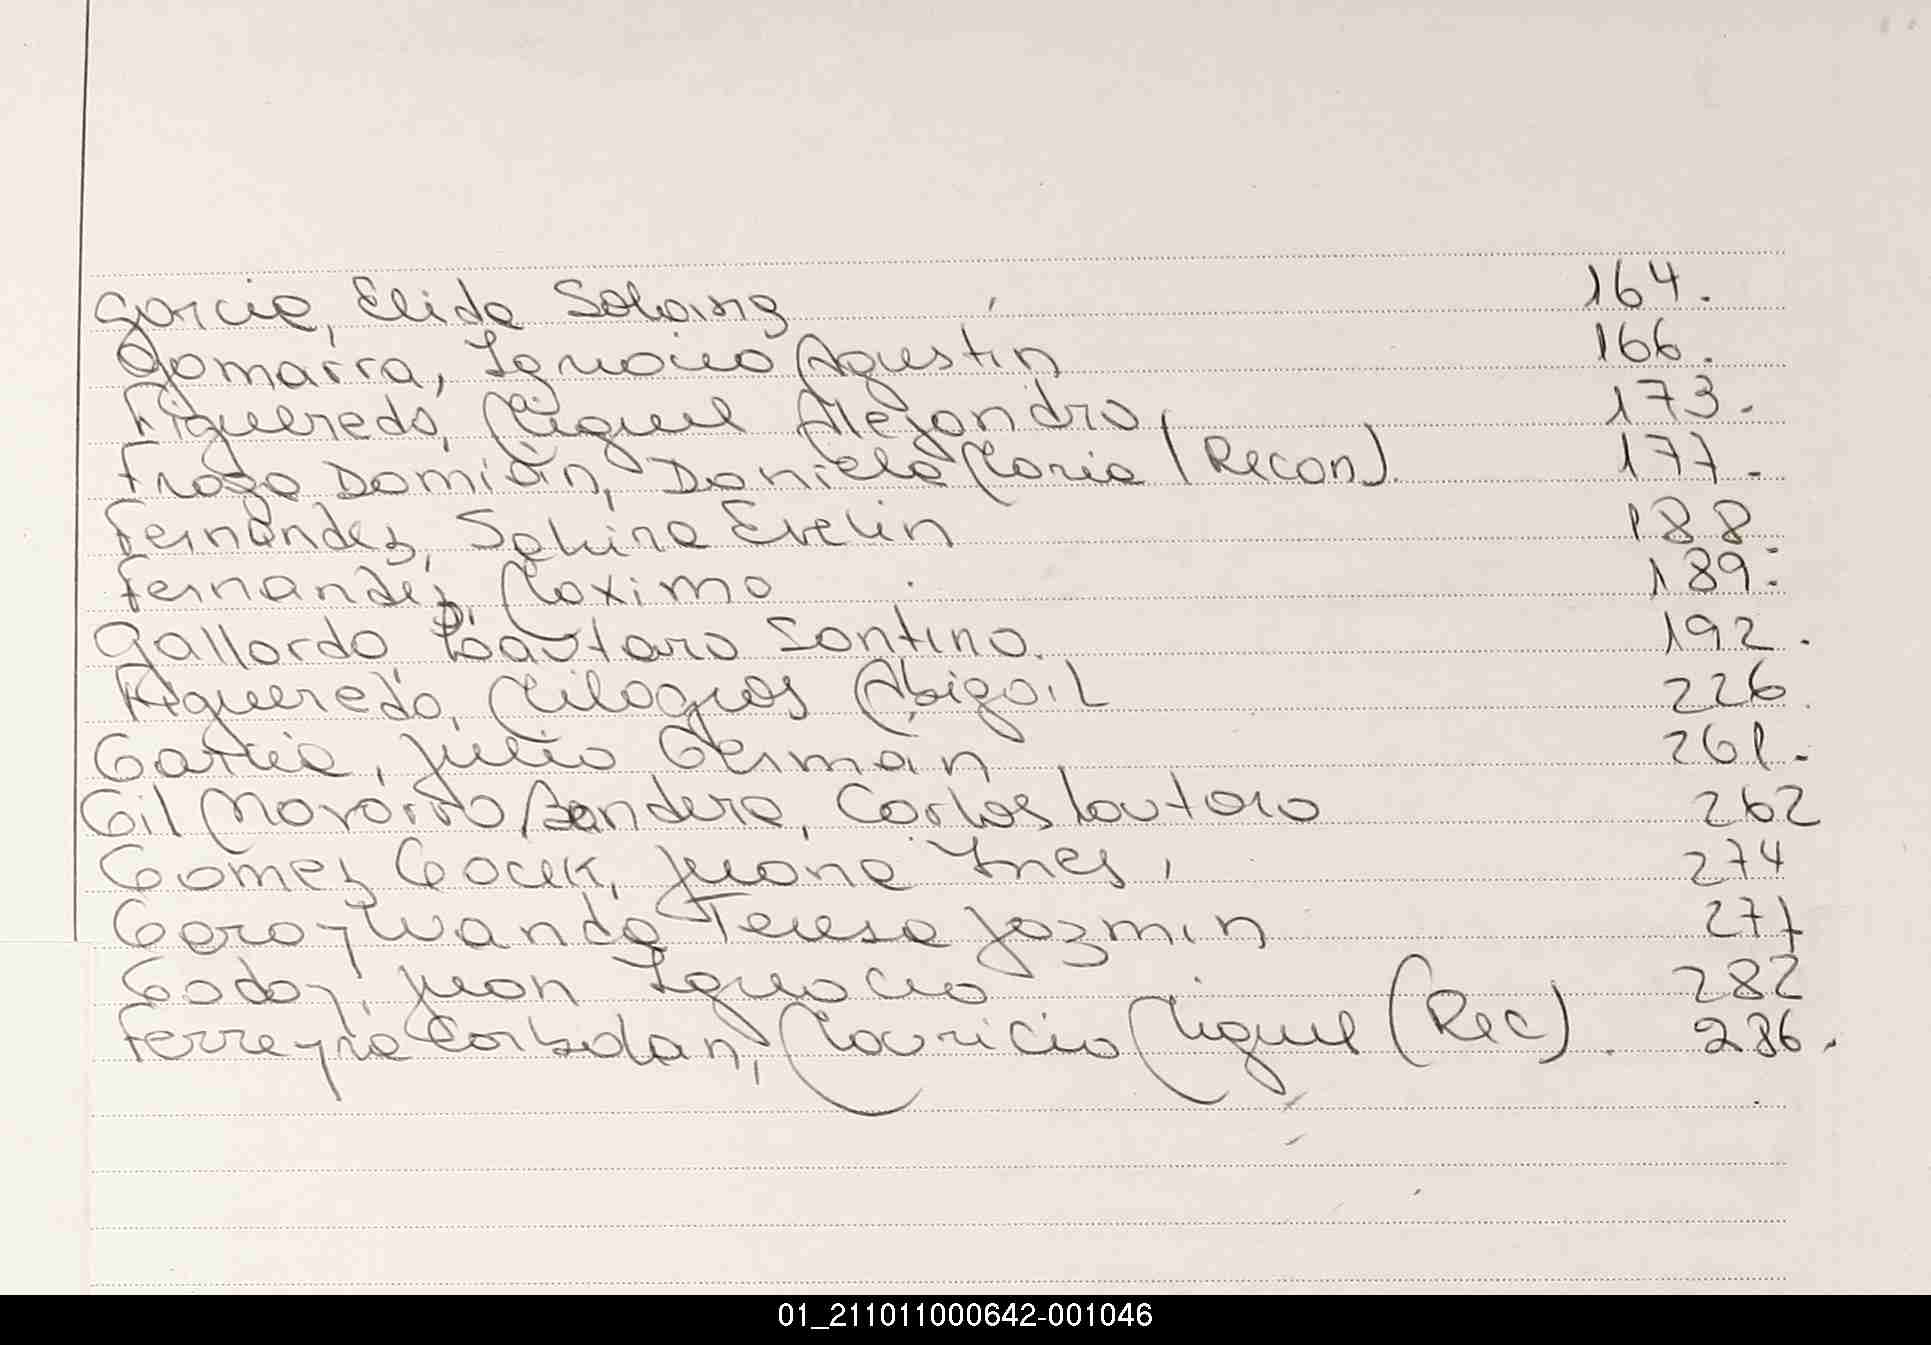 Garcia, Elida Solaing 164.
Gomarra, Ignacio Agustín 166.
Figueredo, Miguel Alejandro 173.
Fraga Damián, Daniela Maria (Recon). 177.
Fernandez, Sabina Evelin 188
Fernandez, Maximo 189.
Gallardo, Lautaro Santino. 192.
Figueredo, Milagros Abigail 226
Garcia, Julio Germán 261.
Gil Navarro Bandera, Carlos Lautaro 262
Gomez Gocek, Juana Ines, 274
Garay Wanda Teresa Jazmin 277
Godoy, Juan Ignacio 282
Ferreyra Corbalan, Mauricio Miguel (Rec). 286.
01_211011000642-001046